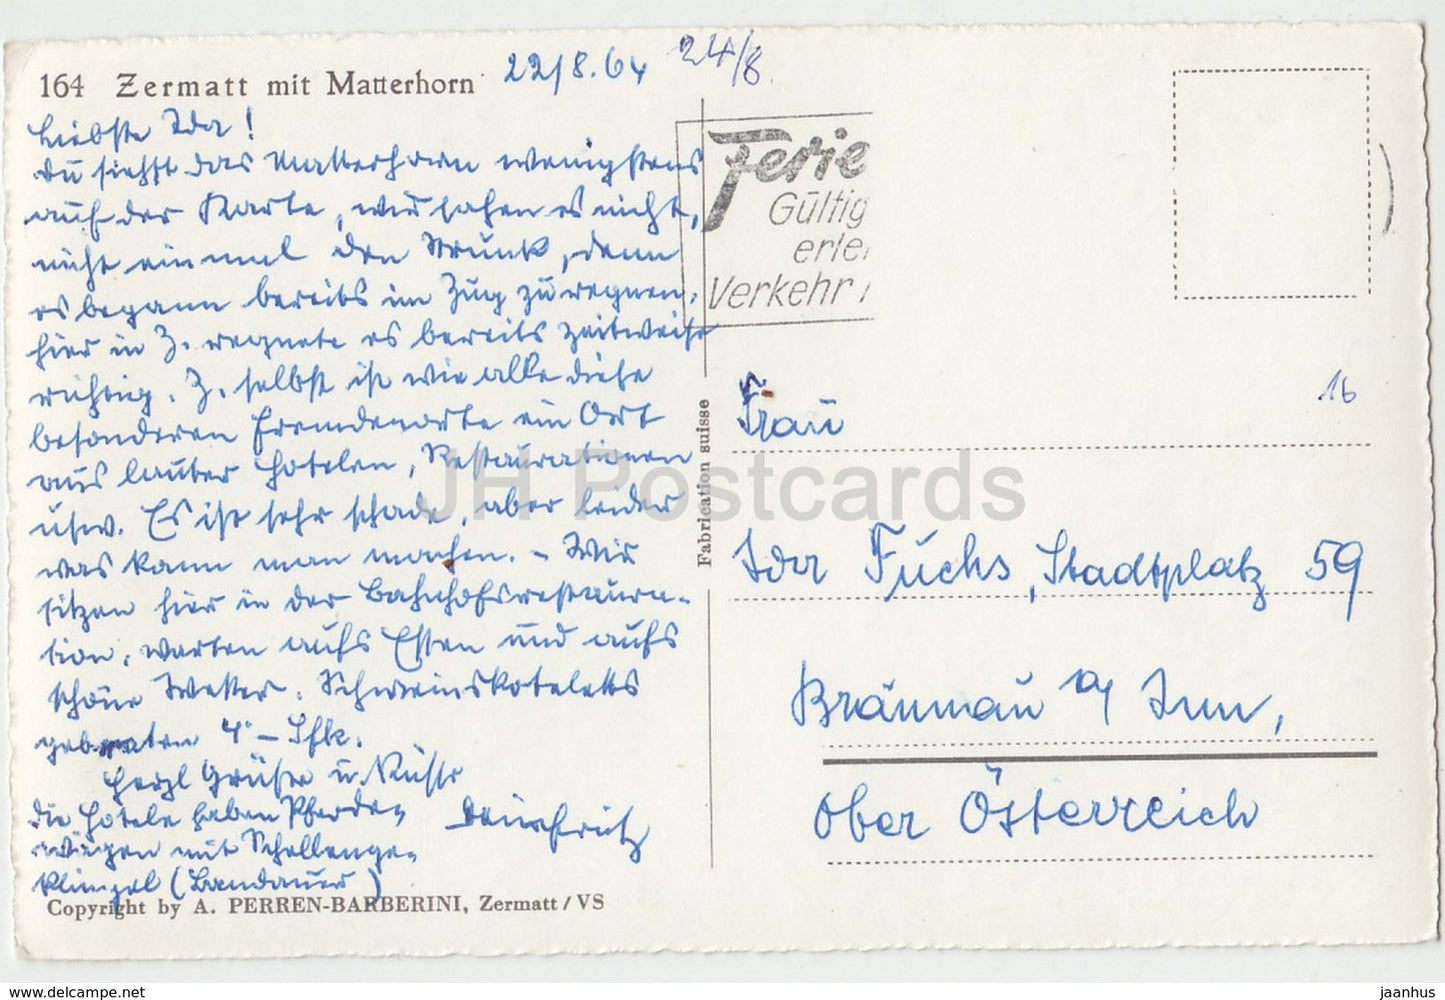 164 Zermatt mit Matterhorn
22/8.64
24/8.
Liebste Ida!
Du siehst das Matterhorn wenigstens
auf der Karte, wir sahen es nicht,
nicht einmal den Strunk, denn
es begann bereits im Zug zu regnen,
hier in Z. regnete es bereits zeitweise
richtig. Z. selbst ist wie alle diese
besonderen Fremdenorte ein Ort
aus lauter Hotelen, Restaurationen
usw. Es ist sehr schade, aber leider
was kann man machen. – Wir
sitzen hier in der Bahnhofsrestaura-
tion, warten aufs Essen und aufs
schöne Wetter. Schweinskoteletts
gebraten 4·– Sfk.
Herzl Grüße u. Küsse
Dein Fritz
Die Hotele haben Pferde-
wägen mit Schellenge-
klingel (Landauer)
Copyright by A. PERREN-BARBERINI, Zermatt/VS
Fabrication suisse
Ferie
Gültig
erle
Verkehr
16
Frau
Ida Fuchs, Stadtplatz 59
Braunau a/ Inn,
Ober Österreich
JH Postcards
www.delcampe.net
jaanhus